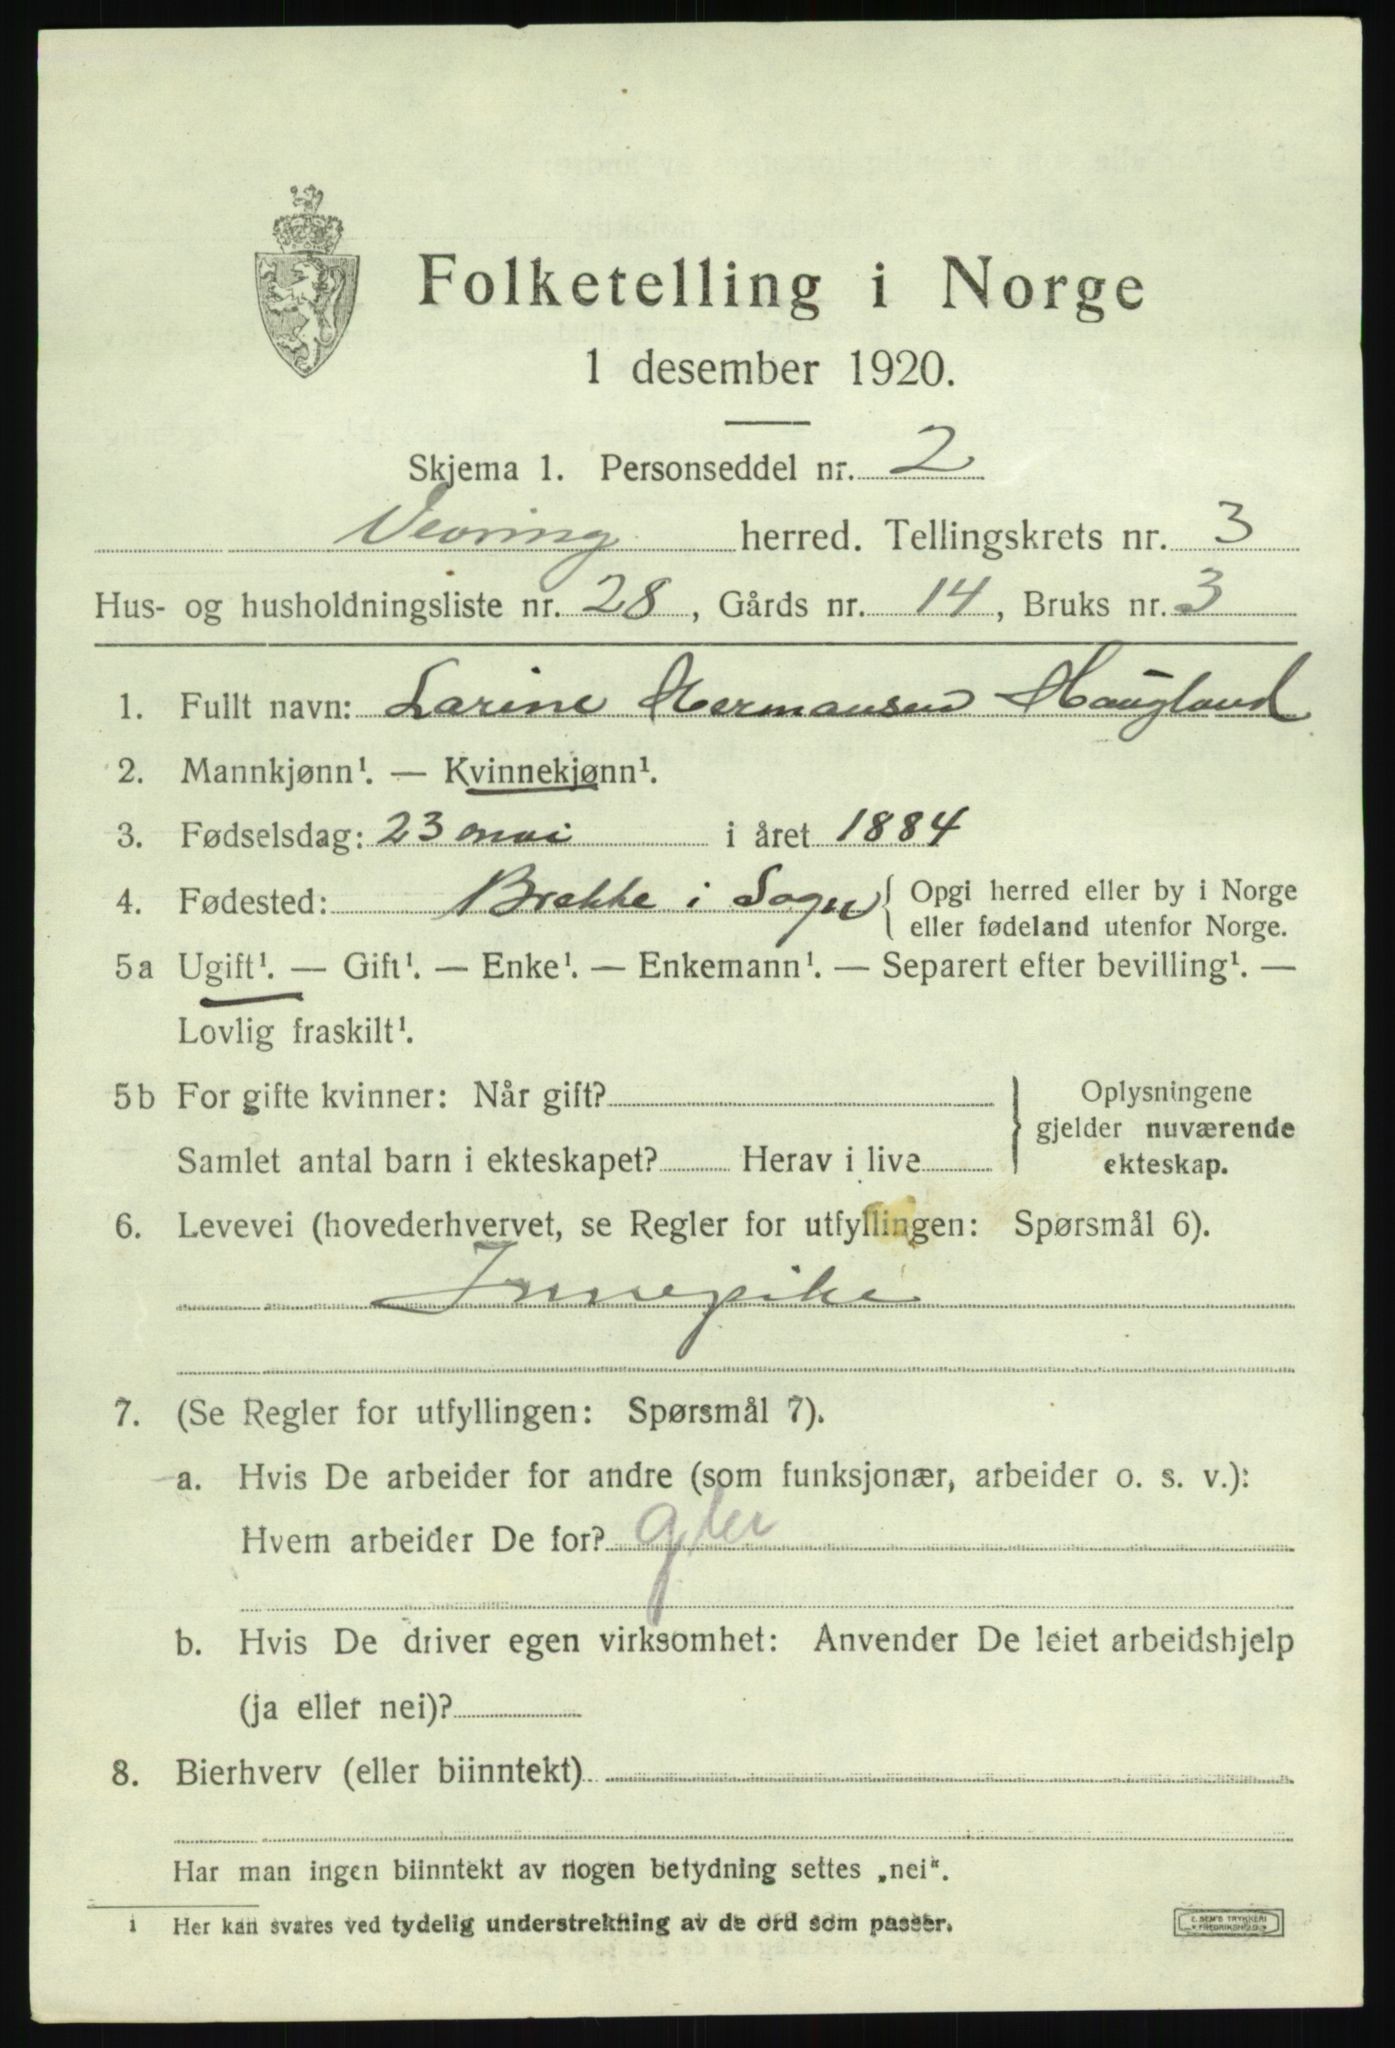 Folketelling i Norge
1 desember 1920.
Skjema 1. Personseddel nr. 2
Vevring herred. Tellingskrets nr. 3
Hus- og husholdningsliste nr. 28, Gårds nr. 14, Bruks nr. 3
1. Fullt navn: Larine Hermansen Haugland
2. Mannkjønn¹. — Kvinnekjønn¹.
3. Fødselsdag: 23 mai i året 1884
4. Fødested: Brekke i Sogn { Opgi herred eller by i Norge
eller fødeland utenfor Norge.
5a Ugift¹. — Gift¹. — Enke¹. — Enkemann¹. — Separert efter bevilling¹. —
Lovlig fraskilt¹.
5b For gifte kvinner: Når gift? } Oplysningene
gjelder nuværende
Samlet antal barn i ekteskapet? Herav i live ekteskap.
6. Levevei (hovederhvervet, se Regler for utfyllingen: Spørsmål 6).
Innepike
7. (Se Regler for utfyllingen: Spørsmål 7).
a. Hvis De arbeider for andre (som funksjonær, arbeider o. s. v.):
Hvem arbeider De for?
b. Hvis De driver egen virksomhet: Anvender De leiet arbeidshjelp
(ja eller nei)?
8. Bierhverv (eller biinntekt)
Har man ingen biinntekt av nogen betydning settes „nei“.
1 Her kan svares ved tydelig understrekning av de ord som passer.